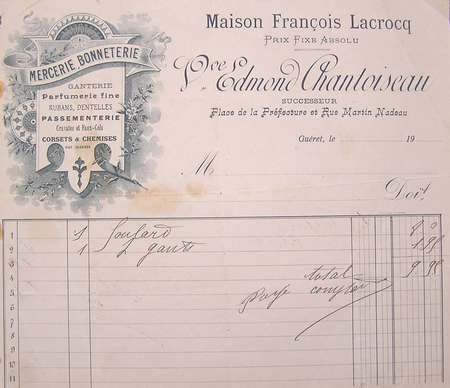 Maison François Lacrocq
PRIX FIXE ABSOLU
Vve Edmond Chantoiseau
SUCCESSEUR
Place de la Préfecture et Rue Martin Nadeau
Guéret, le 19
M
Doit
MERCERIE BONNETERIE
GANTERIE
Parfumerie fine
RUBANS, DENTELLES
PASSEMENTERIE
Cravates et Faux-Cols
CORSETS & CHEMISES
1 1 Foulard 8 0
2 1 gants 1 95
3 total 9 95
4 payé comptant
5
6
7
8
9
10
11